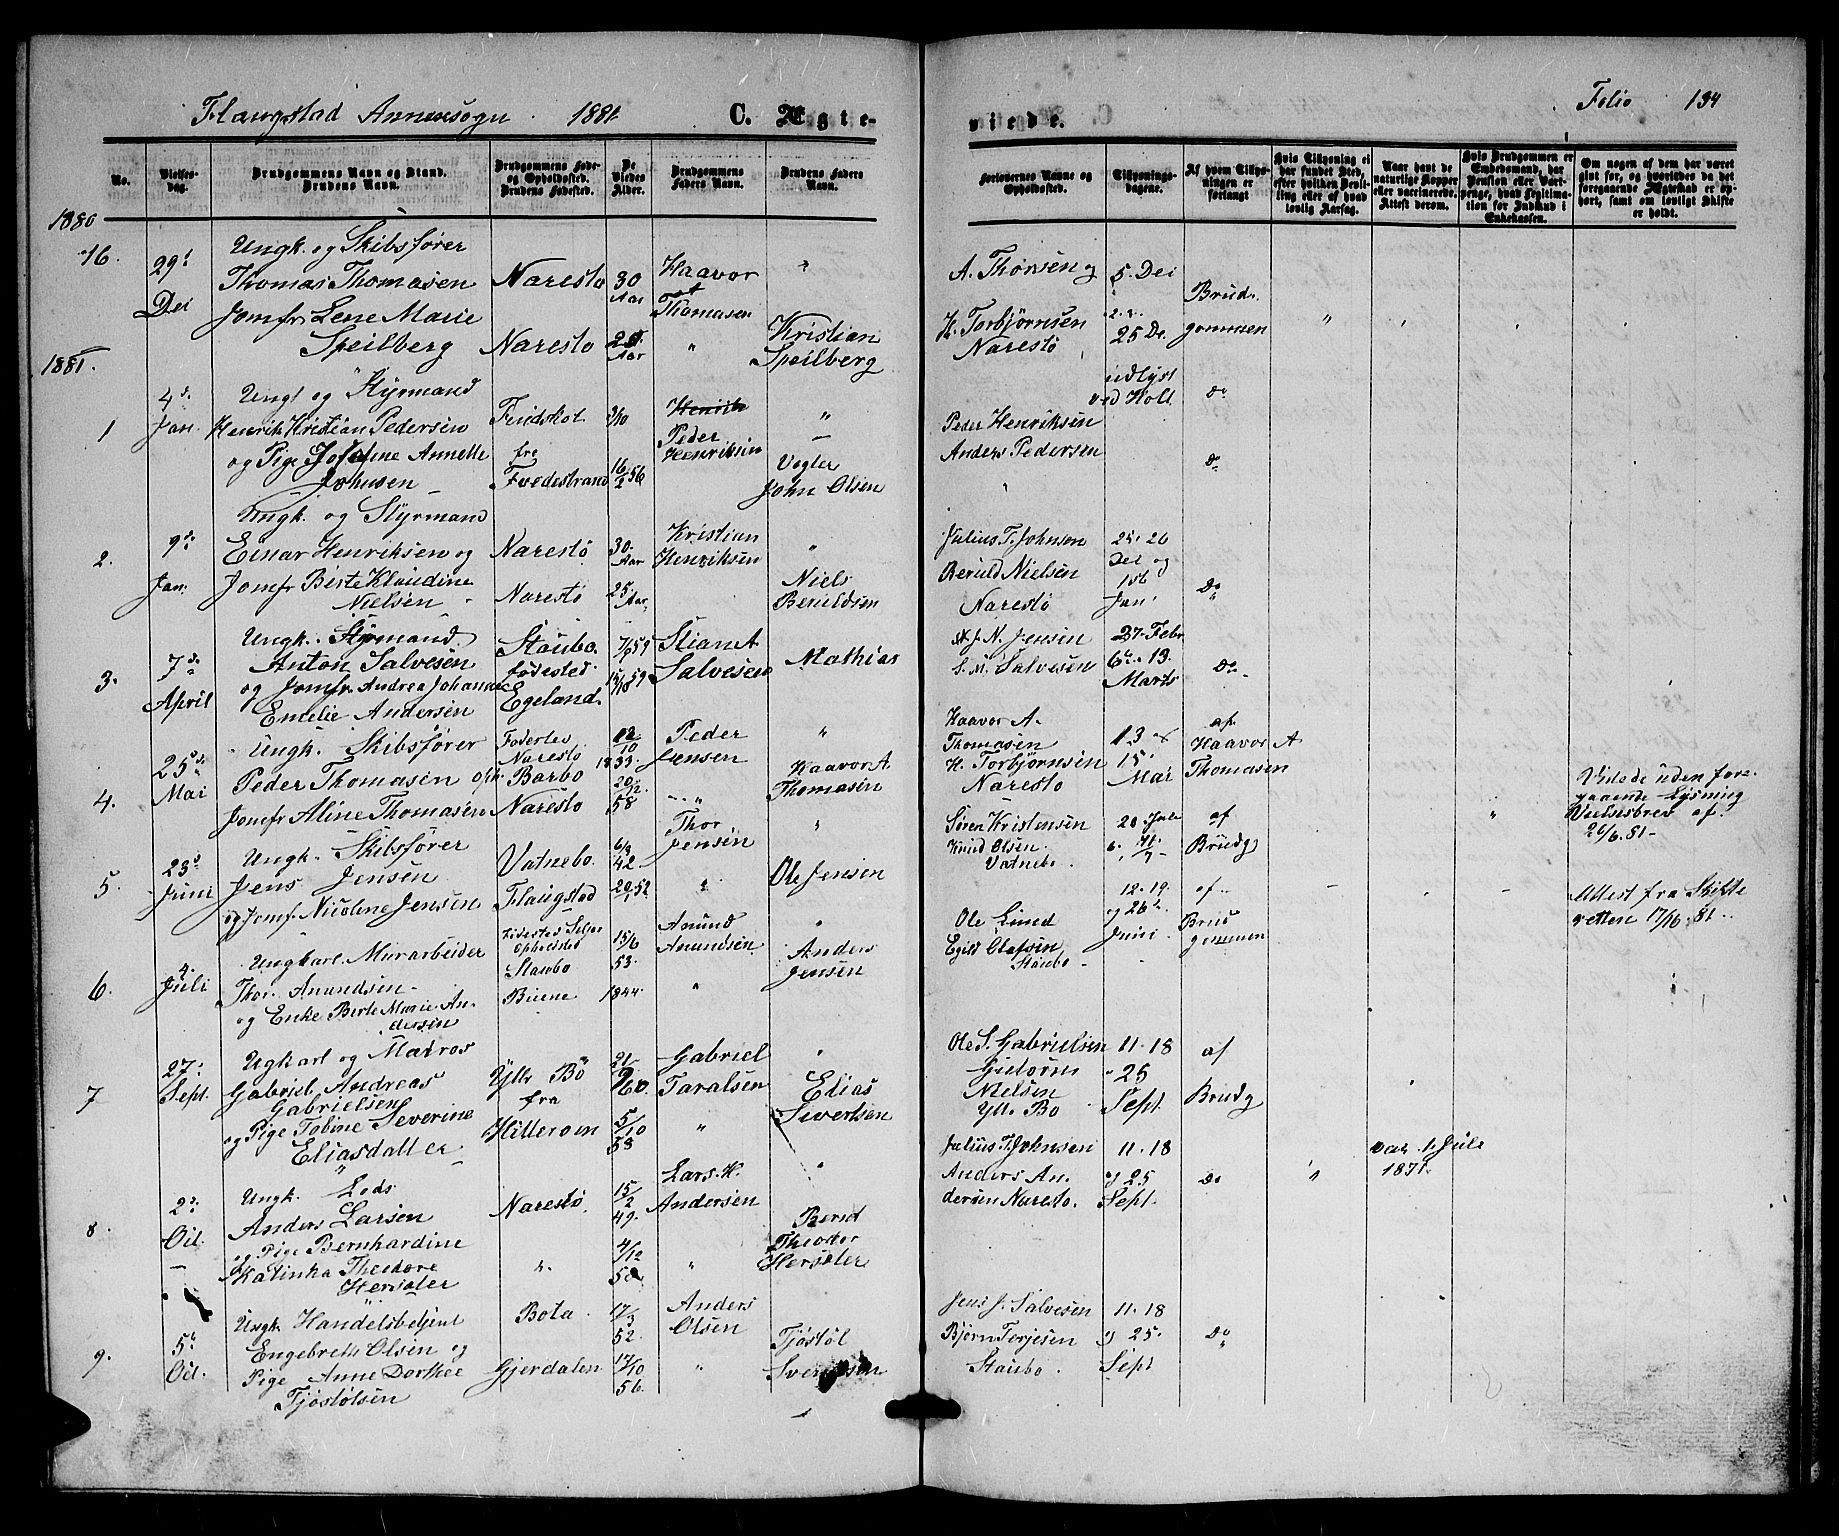 Flaugstad Annexsogn 1881. C. Ægte-
viede. Folio 194
No.
Vielses-
dag.
Brudgommens Navn og Stand.
Brudens Navn.
Brudgommens Føde-
og Opholdssted.
Brudens Fødested.
De
Viedes
Alder.
Brudgommens
Faders Navn.
Brudens Faders
Navn.
Forlovernes Navne og
Opholdssted.
Tillysnings-
dagene.
Af hvem Tillys-
ningen er
forlangt
Hvis Tillysning ei
har fundet Sted,
efter hvilken Bevil-
ling eller af hvad
lovlig Aarsag.
Naar havt de
naturlige Kopper
eller vaccinerede.
Attest derom.
Hvis Brudgommen er
Embedsmand, har
Pension eller Vart-
penge, hvad Legitima-
tion for Indskud i
Enkekassen.
Om nogen af dem har været
gift før, og hvorledes da det
foregaaende Ægteskab er op-
hørt, samt om lovligt Skifte
er holdt.
1880
16.
29d
Dei
Ungk. og Skibsfører
Thomas Thomasen
Jomfr. Lene Marie
Speilberg
Narestø
Narestø
30
Aar
25
Aar
Haavor
Thomasen
"
"
Kristian
Speilberg
A. Thorsen og
H. Torbjørnsen
Narestø
5. Dei
25 De.
Brud-
gommen
"
1881.
1
4d.
Jan.
Ungk og Styrmand
Henrik Kristian Pedersen
og Pige Josefine Annette
Johnsen
Findskot
fra
Tvedestrand
3/10
16/2 56
Henrik
Peder
Henriksen
"
Vogler
John Olsen
Peder Henriksen
Anders Pedersen
udlyst
ved Holt
Do
Do
2.
9d.
Jan.
Ungk. og Styrmand
Einar Henriksen og
Jomfr Birte Klaudine
Nielsen
Narestø
Narestø
30.
Aar
25
Aar.
Kristian
Henriksen
"
Niels
Beruldsen
Julius T. Johnsen
Beruld Nielsen
Narestø
25. 26
Dei og
1st
Jan.
Do
3.
7de
April
Ungk. Styrmand
Anton Salvesen
og Jomfr. Andrea Johanne
Emelie Andersen
Staubo.
Fødested
Egeland.
7/6 59
15/10 59
Stian A
Salvesen
Mathias
J. N. Jensen
S. M. Salvesen
27. Febr
6te. 13.
Marts
Do
4.
25de
Mai
Ungk. Skibsfører
Peder Thomasen
Jomfr Aline Thomasen
Fødested
Narestø
Oph. Barbo
Narestø
12/10
1833.
20/12.
58
Peder
Jensen
"
"
Haavor A.
Thomasen
Haavor A.
Thomasen
H. Torbjørnsen
Narestø
13 og
15
Mai
af.
Haavor A
Thomasen
"
Viede uden fore-
gaaende Lysning
Vielsesbrev af
26/6.81-
5.
23d
Juni
Ungk. Skibsfører
Jens Jensen
og Jomfr. Nicoline Jensen
Vatnebo.
Flaugstad
6/3
42.
Thor
Jensen
"
"
Ole Jensen
Søren Kristensen
Knud Olsen.
Vatnebo.
af
Brudg
6.
4.
Juli
Ungkarl. Murarbeider
Thor. Anundsen
og Enke Berte Marie An-
dersen
Opholdsted
Staubo
Biune
15/6
53.
1844.
Anund
Anundsen
"
"
Anders
Jensen
Ole Lund
Egild Olafsen
Staubo
12. 19.
og 26de
Juni
af.
Brud
gommen
Attest fra Skifte
retten 17/6.81.
7
27.
Sept.
Ugkarl og Matros
Gabriel. Andreas
Gabrielsen
og Pige Tobine Severine
Eliasdatter
Ytte Bö
fra
Hitterom
60
5/10
58
Gabriel
Taralsen
"
"
Elias
Severtsen
Ole S. Gabrielsen
Gutorm
Nielsen
Ytte Bo
11. 18
25
Sept
af
Brudg
8.
2d.
Oct.
Ungk. Lods
Anders Larsen
og Pige Bernhardine
Katinka Theodore
Hersøter
Narestø
"
15/2
49.
4/12
58
Lars. H.
Andersen
"
"
Bernt
Theodor
Hersøter
Julius T. Johnsen
Anders An.
dersen Narestø.
11. 18
og 25
Sept.
Do
"
vac. 1 Jule
1871.
9.
5d
Oct.
Ungk. Handelsbetjent
Engebreth Olsen og
Pige Anne Dorthee
Tjøstølsen
Bota
Gjerdalen
17/3
52.
17/10
56.
Anders
Olsen
"
Tjøstøl
Svendsen
Jens J. Salvesen
Bjørn Terjesen
Staubo.
11. 18
og 25.
Sept
Do